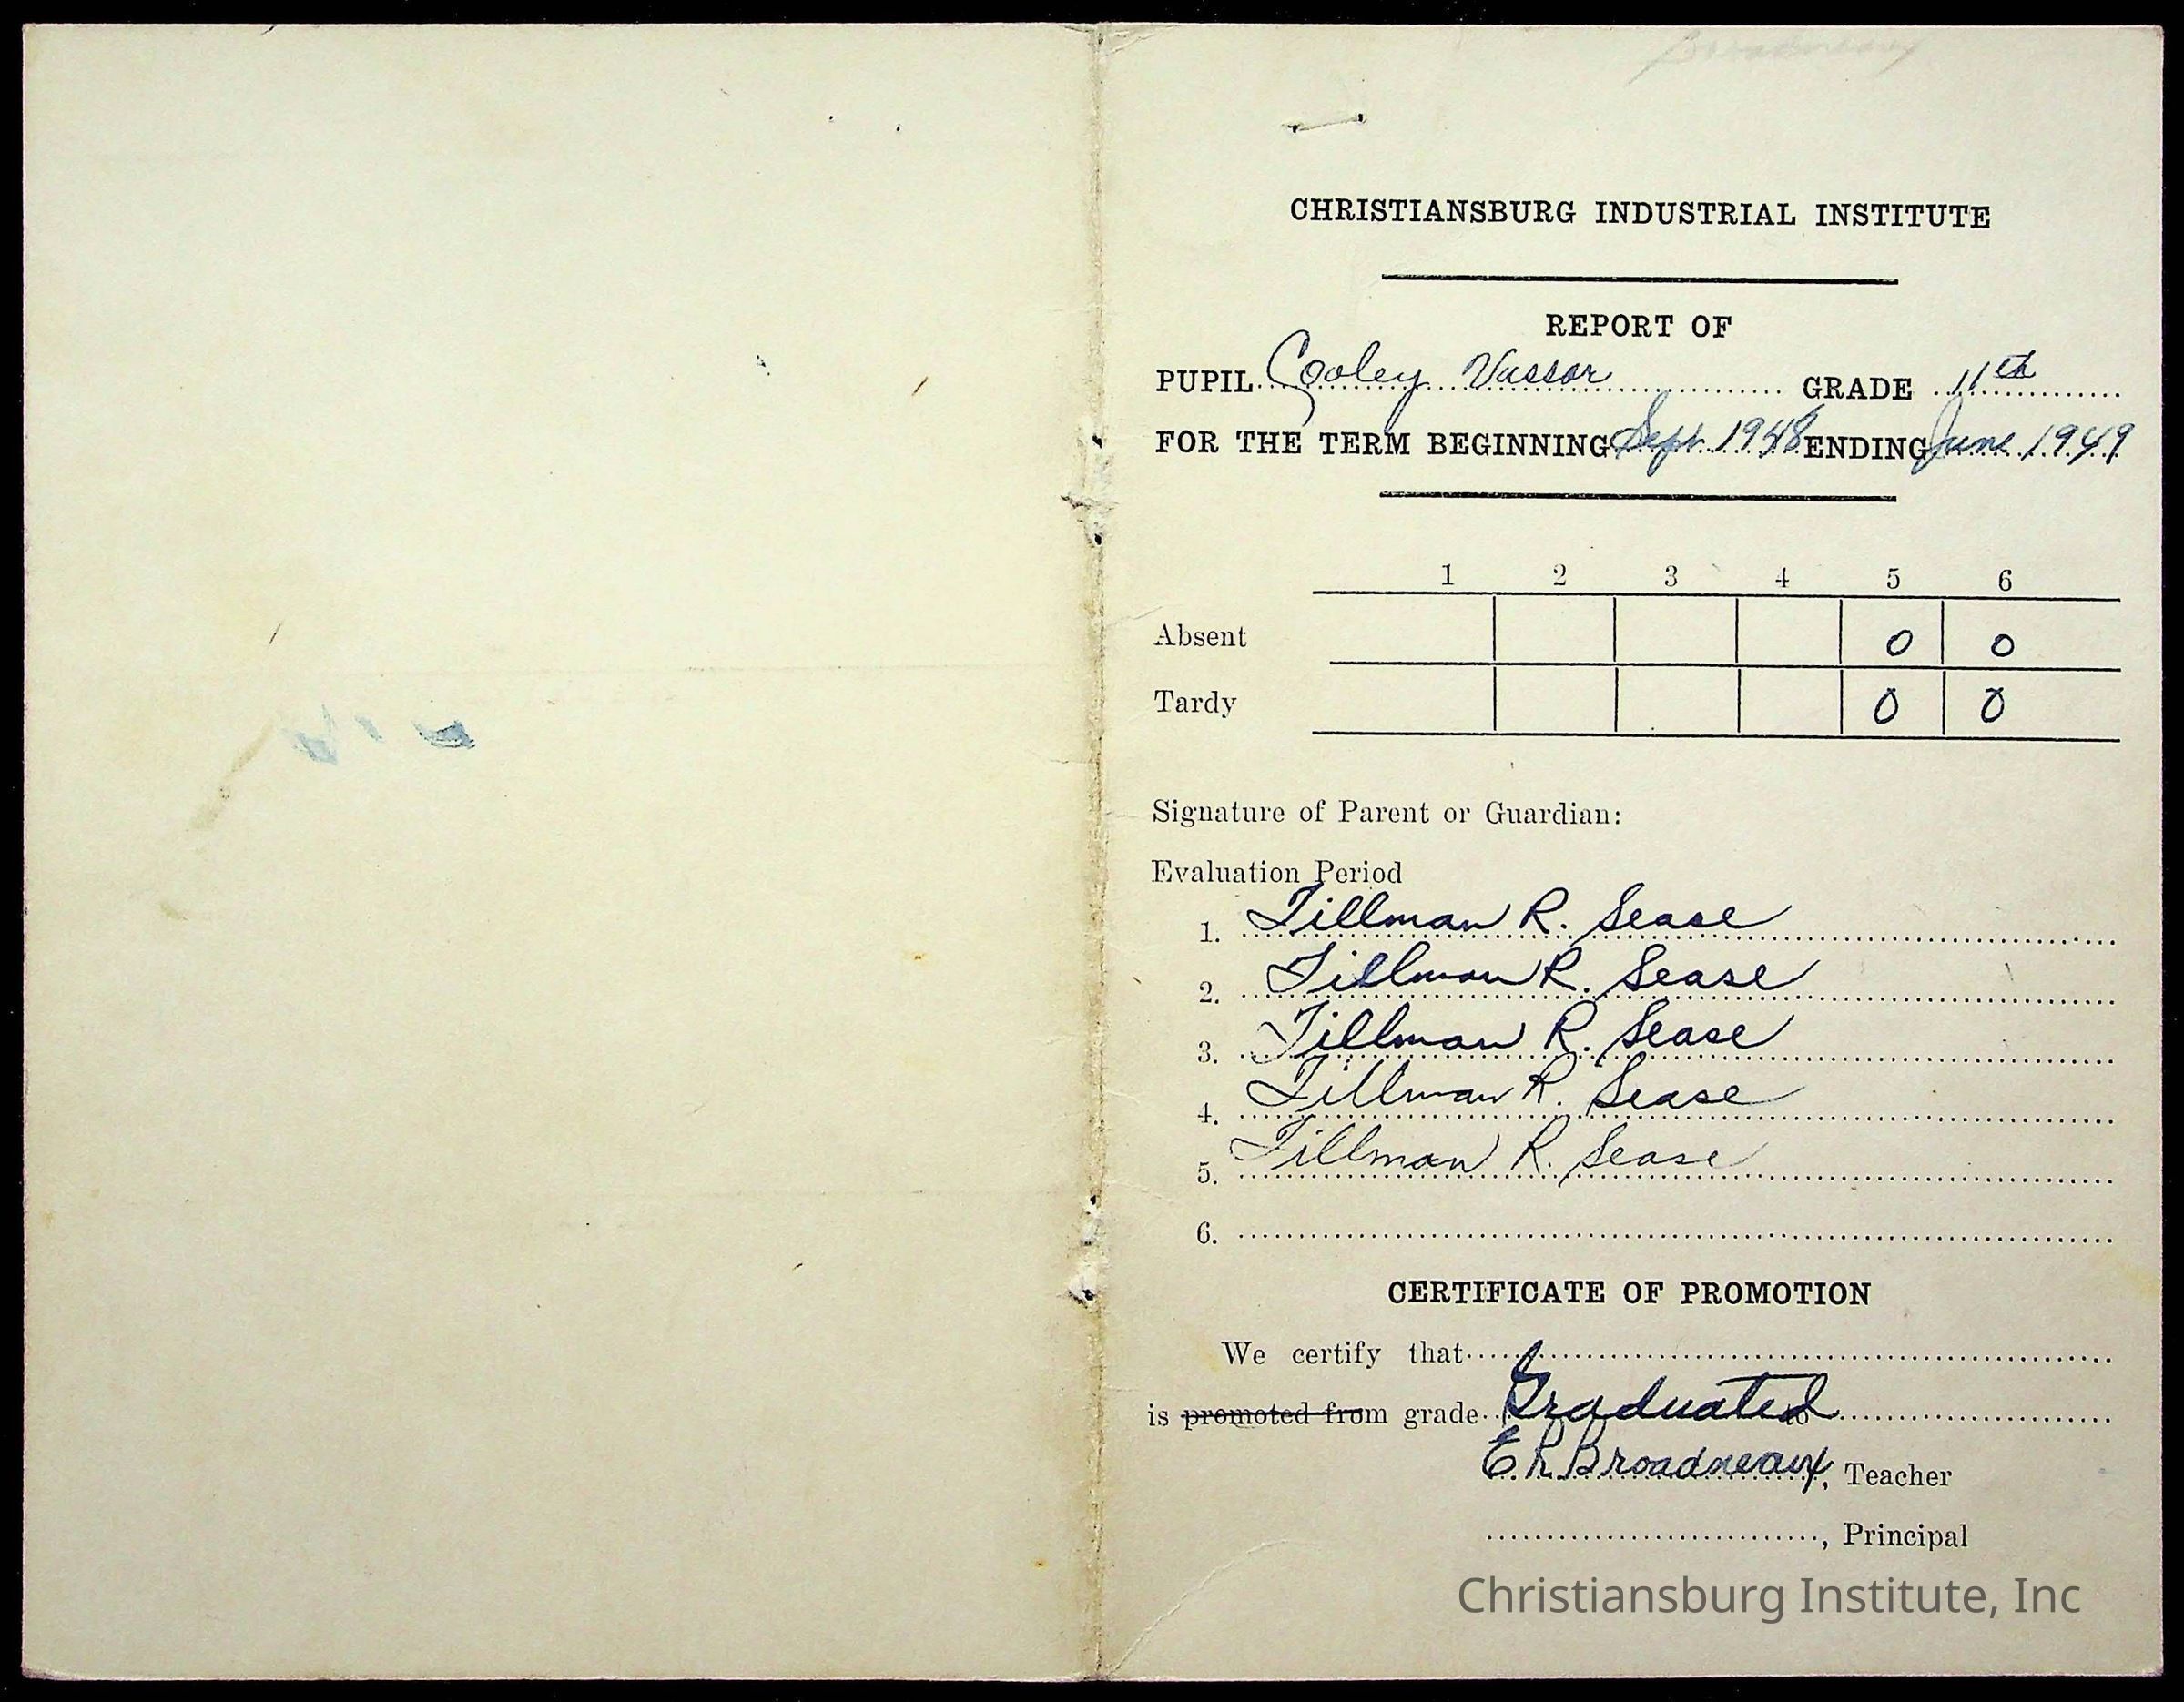 Broadneaux
CHRISTIANSBURG INDUSTRIAL INSTITUTE
REPORT OF
PUPIL Cooley Vassor GRADE 11th
FOR THE TERM BEGINNING Sept. 1948 ENDING June 1949
1 2 3 4 5 6
Absent 0 0
Tardy 0 0
Signature of Parent or Guardian:
Evaluation Period
1. Tillman R. Sease
2. Tillman R. Sease
3. Tillman R. Sease
4. Tillman R. Sease
5. Tillman R. Sease
6.
CERTIFICATE OF PROMOTION
We certify that
is promoted from grade Graduated to
E. R. Broadneaux, Teacher
, Principal
Christiansburg Institute, Inc